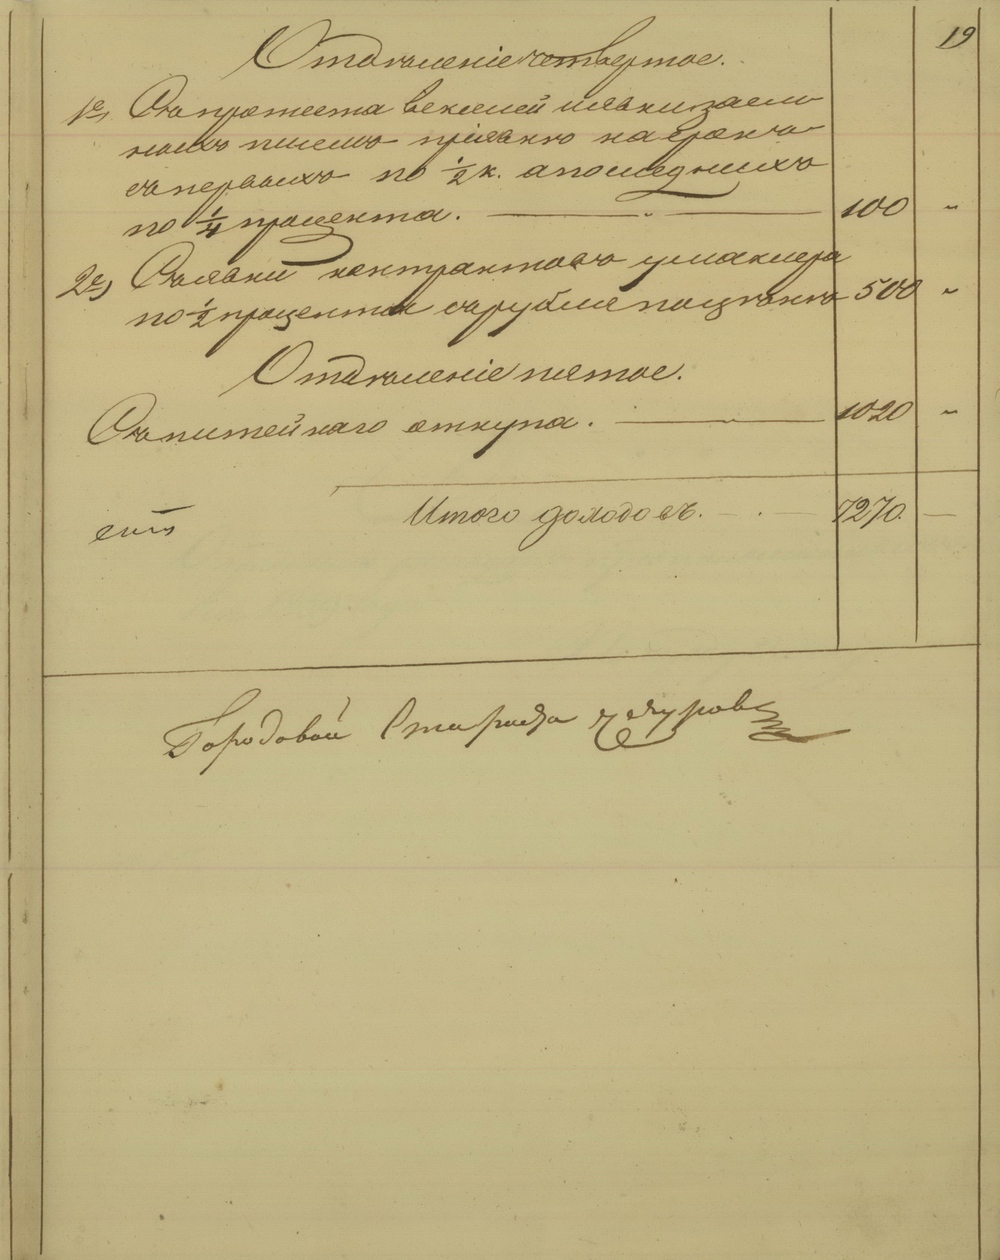 19
Отдѣленіе четвертое.
1е, Съ протеста векселей и явки заем
ныхъ писемъ
съ первыхъ по ½ к. а послѣднихъ
по ¼ процента. — „ — 100 „
2е, Съ явки контрактовъ у маклера
по ½ процента съ рубля 500 „
Отдѣленіе пятое.
Съ питейнаго откупа. — 1020 „
Итого доходовъ. — . — 7270. —
Городовой Староста